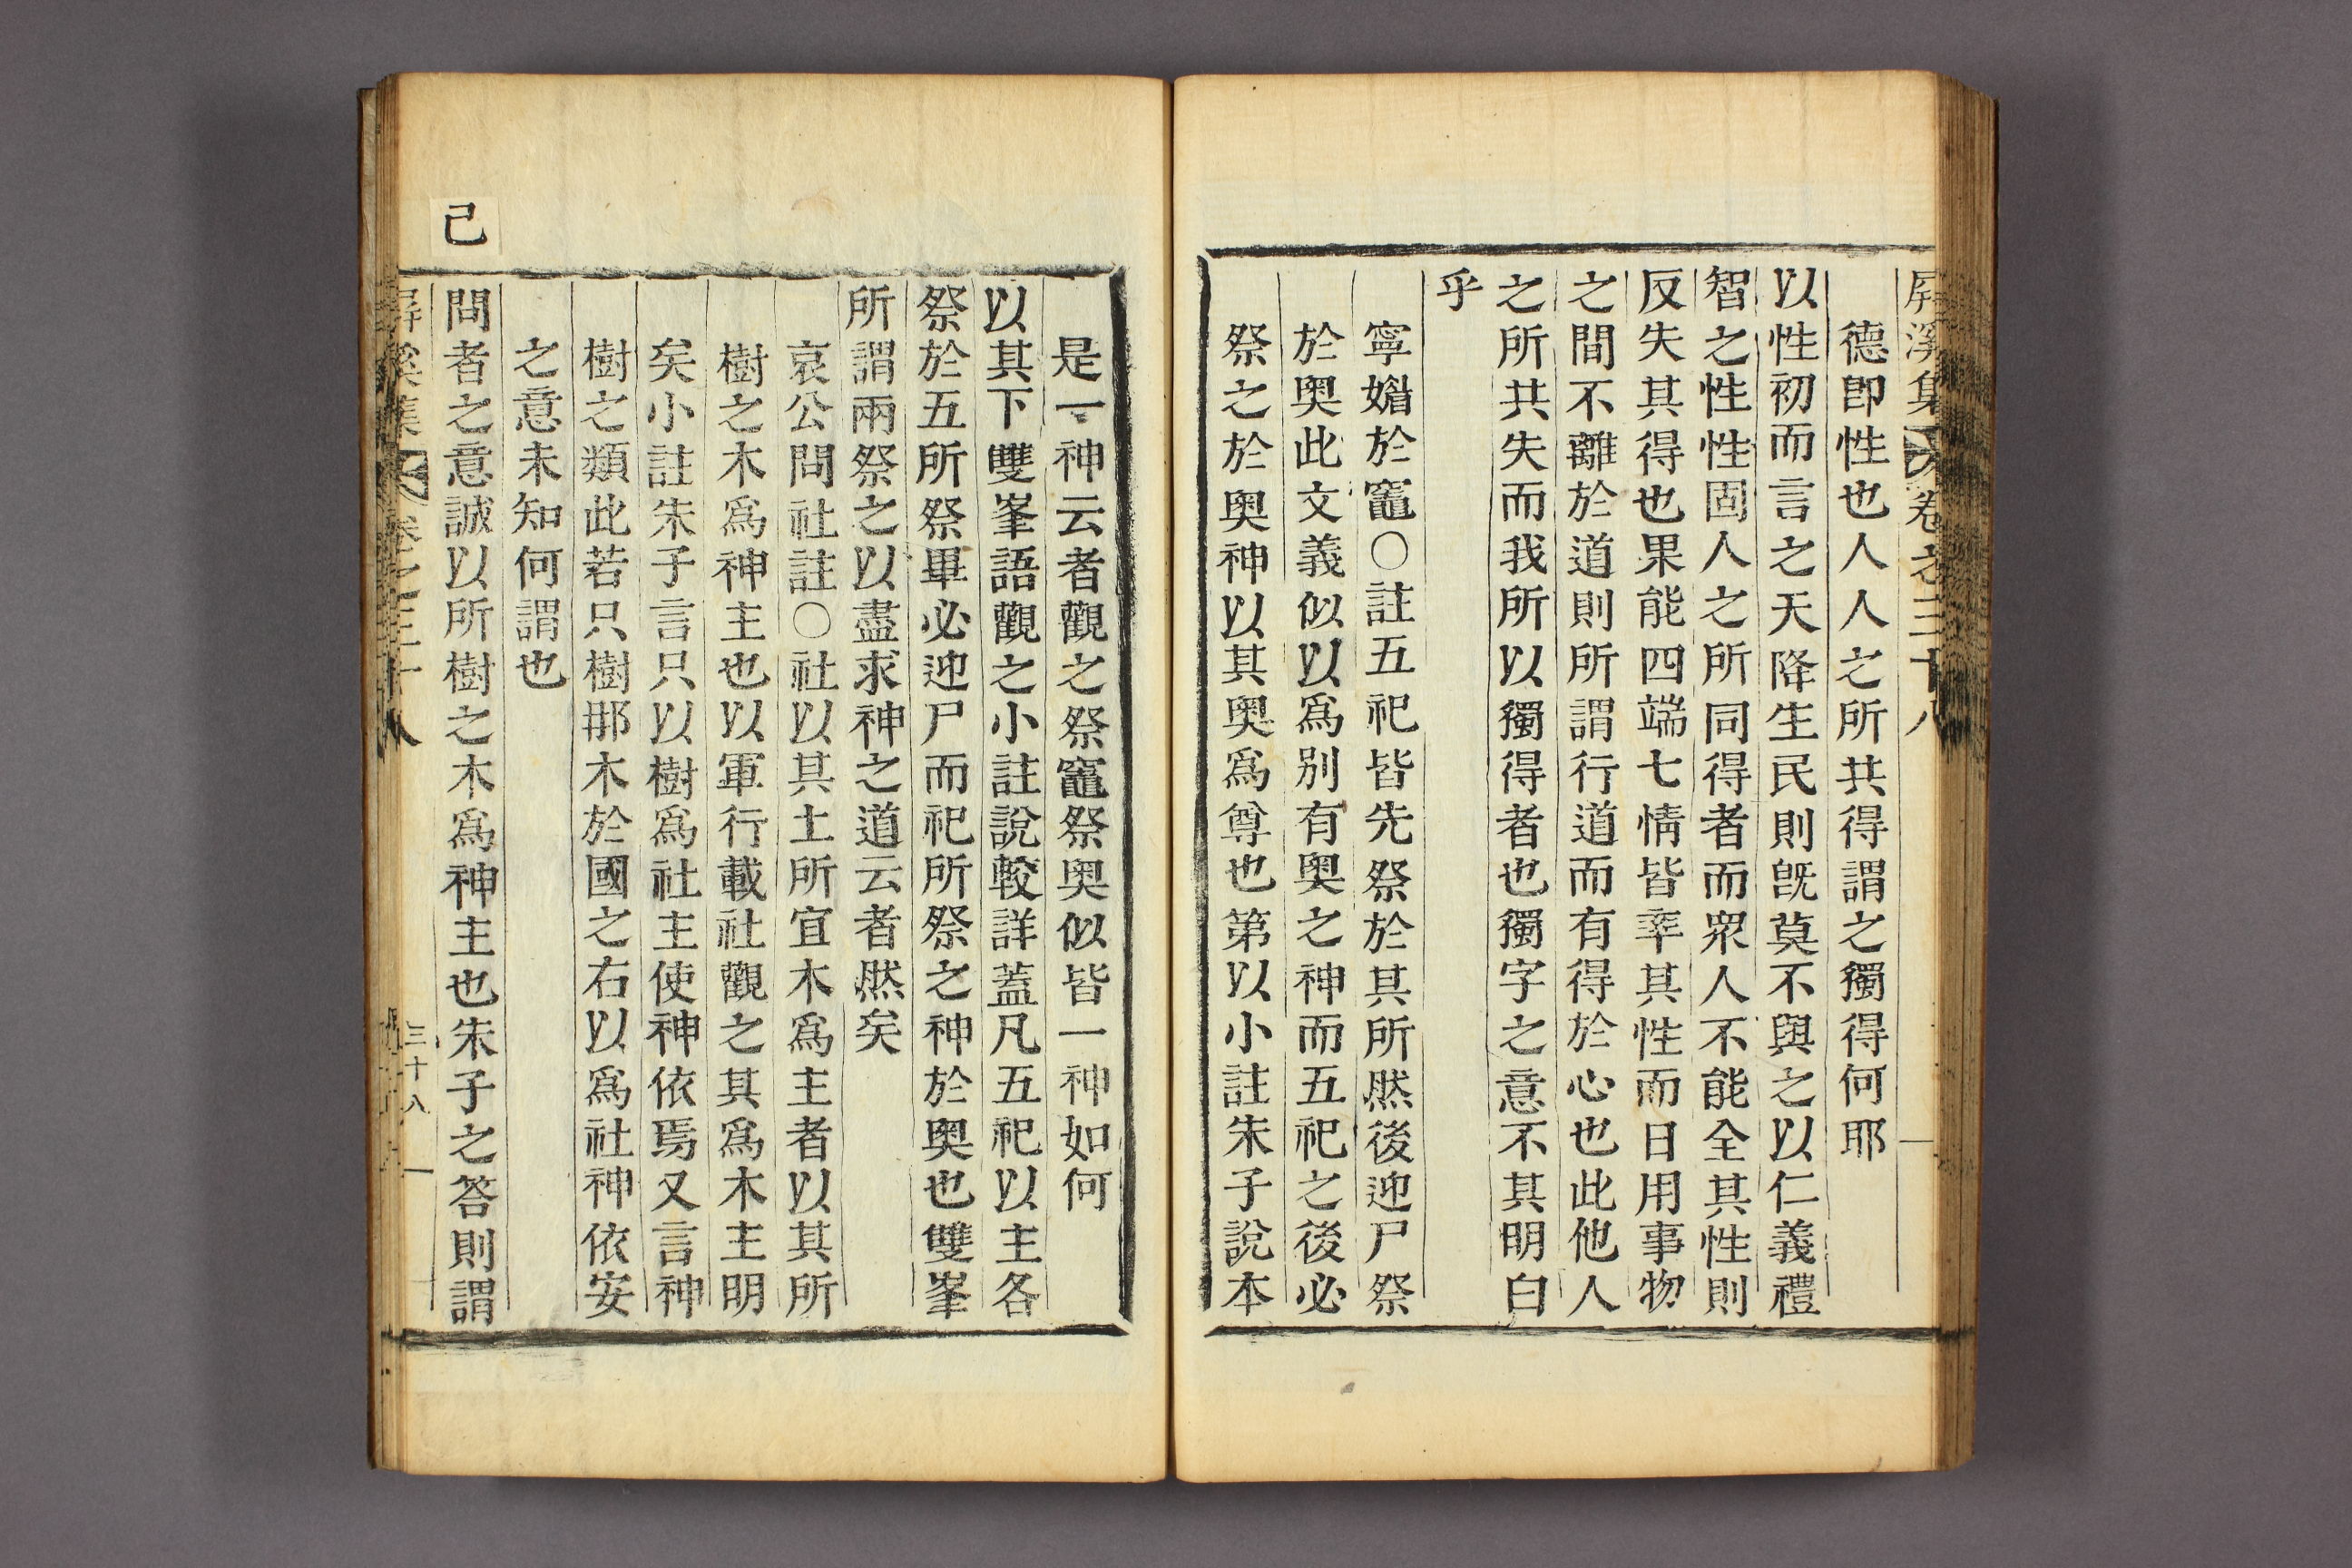 屛溪集 卷之三十八
德卽性也人人之所共得謂之獨得何耶
以性初而言之天降生民則旣莫不與之以仁義禮
智之性性固人之所同得者而衆人不能全其性則
反失其得也果能四端七情皆率其性而日用事物
之間不離於道則所謂行道而有得於心也此他人
之所共失而我所以獨得者也獨字之意不其明白
乎
寧媚於竈○註五祀皆先祭於其所然後迎尸祭
於奧此文義似以爲別有奧之神而五祀之後必
祭之於奧神以其奧爲尊也第以小註朱子說本
是一神云者觀之祭竈祭奧似皆一神如何
以其下雙峯語觀之小註說較詳蓋凡五祀以主各
祭於五所祭畢必迎尸而祀所祭之神於奧也雙峯
所謂兩祭之以盡求神之道云者然矣
哀公問社註○社以其土所宜木爲主者以其所
樹之木爲神主也以軍行載社觀之其爲木主明
矣小註朱子言只以樹爲社主使神依焉又言神
樹之類此若只樹那木於國之右以爲社神依安
之意未知何謂也
問者之意誠以所樹之木爲神主也朱子之答則謂
屛溪集 卷之三十八
三十八
己